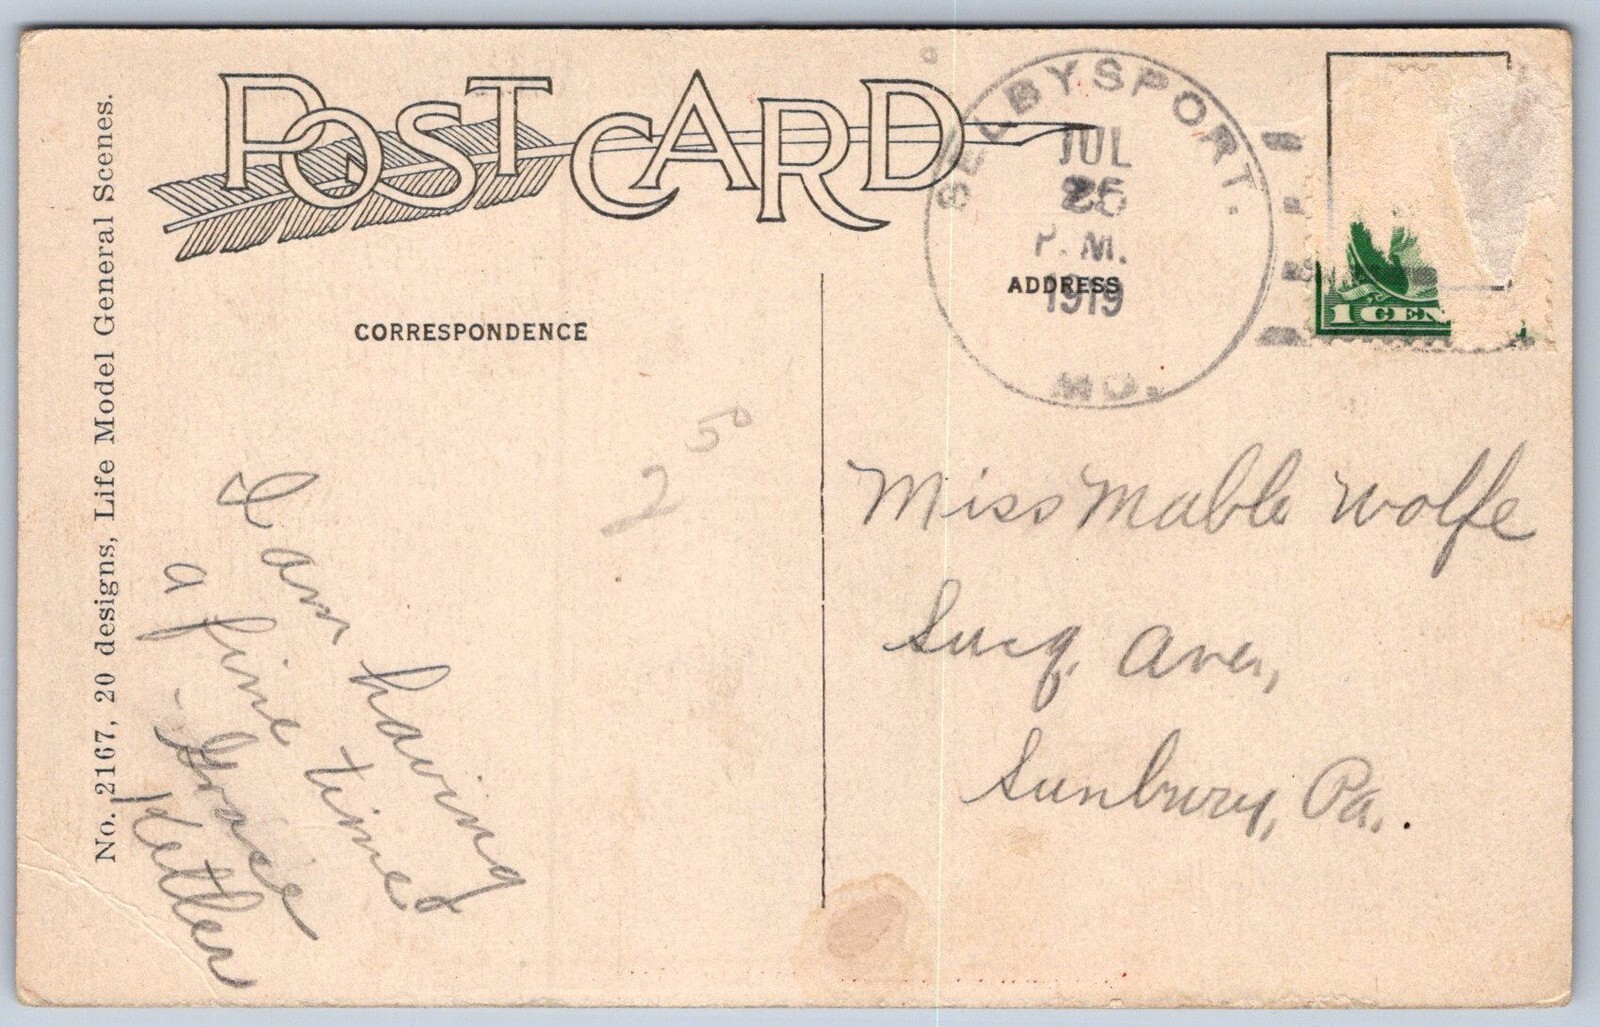 POST CARD
SELBYSPORT.
JUL
25
P. M.
1919
MD.
ADDRESS
CORRESPONDENCE
1 CEN
No. 2167, 20 designs, Life Model General Scenes.
2 50
I am having
a fine time
- Grace
Ketler
Miss Mable Wolfe
Susq. Ave.,
Sunbury, Pa.